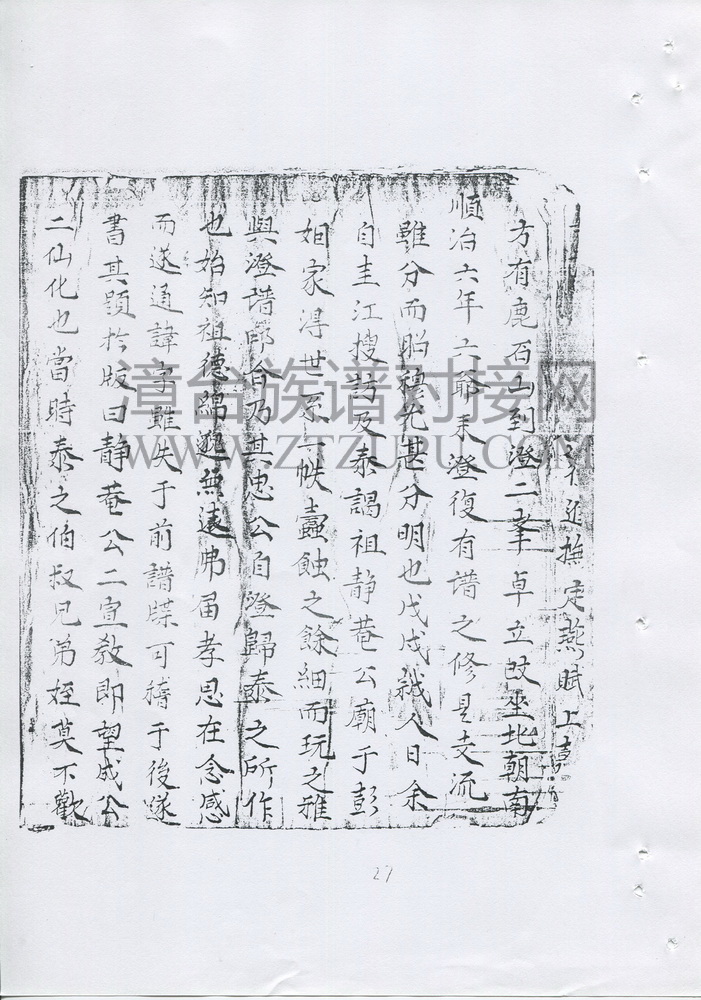 年進撫定燕賦上
方有鹿石山到澄二峯卓立改坐北朝南
順治六年六爺未澄復有譜之修是支流
雖分而昭穆尤甚分明也戊戌誠人日余
自圭江搜訪及泰謁祖静菴公廟于彭
姐家得世系一帙蠹蝕之餘細而玩之雅
與澄譜脗合乃其忠公自澄歸泰之所作
也始知祖德綿遞無遠弗届孝思在念感
而遂通諱字雖失于前譜牒可稽于後遂
書其顕於版曰静菴公二宣教即望成公
二仙化也當時泰之伯叔兄弟姪莫不歡
漳台族谱对接网
WWW.ZTZUPU.COM
27